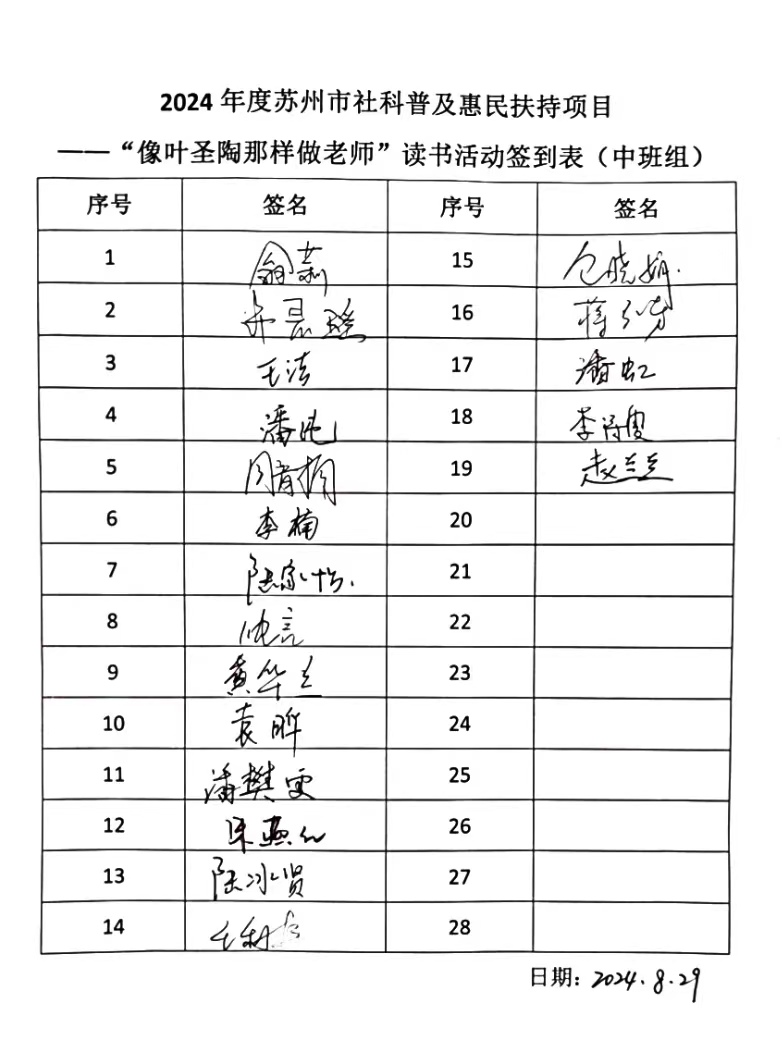 2024 年度苏州市社科普及惠民扶持项目
——“像叶圣陶那样做老师”读书活动签到表（中班组）
序号 签名 序号 签名
1 翁莉 15 包晓娟.
2 许晨瑶 16 蒋
3 王洁 17 潘虹
4 潘 18 李
5 周青楠 19 赵兰兰
6 李楠 20
7 陆家怡. 21
8 22
9 黄华兰 23
10 袁晔 24
11 潘樊雯 25
12 朱燕 26
13 陆冰贤 27
14 28
日期：2024.8.29